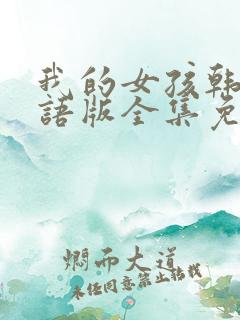 我的女孩韩
語版全集免
燜而大道
未经同意禁止转载